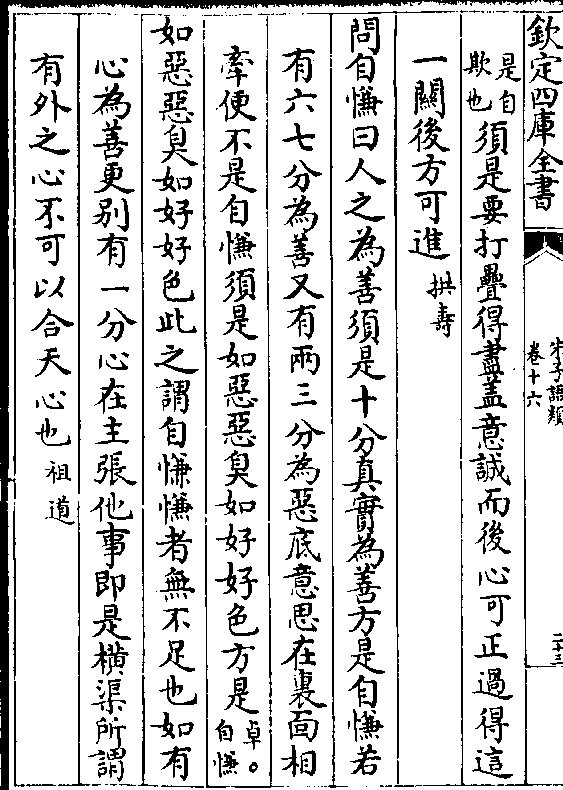 欽定四庫全書
朱子語類
卷十六
二十三
是自欺也須是要打疊得盡蓋意誠而後心可正過得這
一關後方可進 拱壽
問自慊曰人之為善須是十分真實為善方是自慊若
有六七分為善又有兩三分為惡底意思在裏面相
牽便不是自慊須是如惡惡臭如好好色方是自慊卓。
如惡惡臭如好好色此之謂自慊慊者無不足也如有
心為善更别有一分心在主張他事即是横渠所謂
有外之心不可以合天心也 祖道